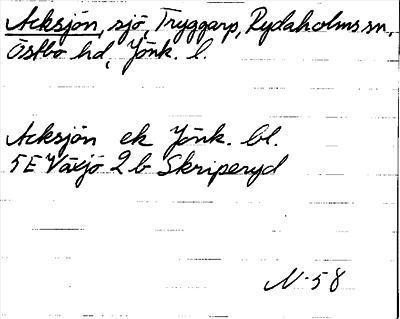 Acksjön, sjö, Tryggarp, Rydaholms sn,
Östbo hd, Jönk. l.
Acksjön ek Jönk. bl.
5E Växjö 2b Skriperyd
N-58